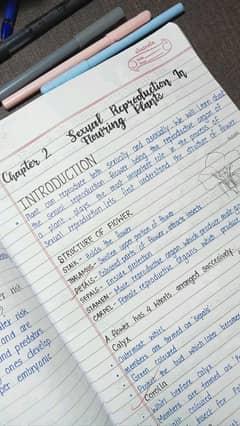 Chapter 2
Sexual Reproduction In
Flowring Plants
INTRODUCTION
Plant can reproduce both sexually and asexually. We will learn about
the sexual reproduction flower being the reproductive organ of
a plant plays the most important role in the process of
sexual reproduction lets first understand the structure of flower.
STRUCTURE OF FLOWER
STALK - Holds the flower
THALAMUS - Swollen upper portion of
PETALS - Coloured parts of flower attract insects
SEPALS - Provide protection
STAMEN - Male reproductive organ which produce
CARPEL - Female reproductive organs which produce
A flower has 4 whorls arranged successively
Calyx
Outermost whorl
members are termed as 'Sepals'
Green coloured
Protect the bud which later becomes
Corolla
Whorl before calyx
Members are termed as
coloured
insect for
risk
and predators
ones develop
embryonic